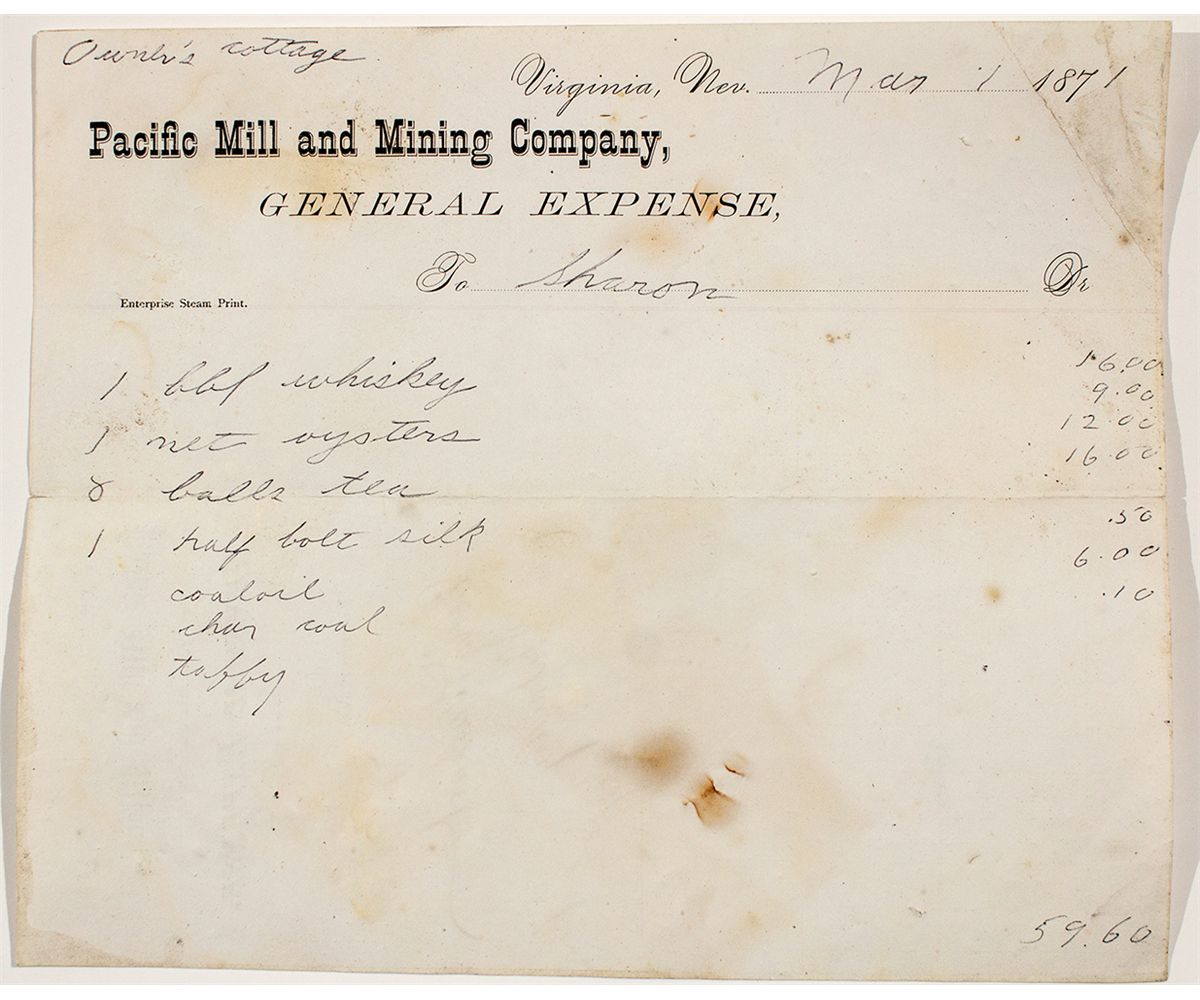 Owner's cottage
Virginia, Nev. Mar 1 1871
Pacific Mill and Mining Company,
GENERAL EXPENSE,
To Sharon Dr
Enterprise Steam Print.
1 bbl whiskey 16.00
9.00
1 net oysters 12.00
16.00
8 balls tea
.50
1 half bolt silk 6.00
coaloil .10
char coal
taffy
59.60